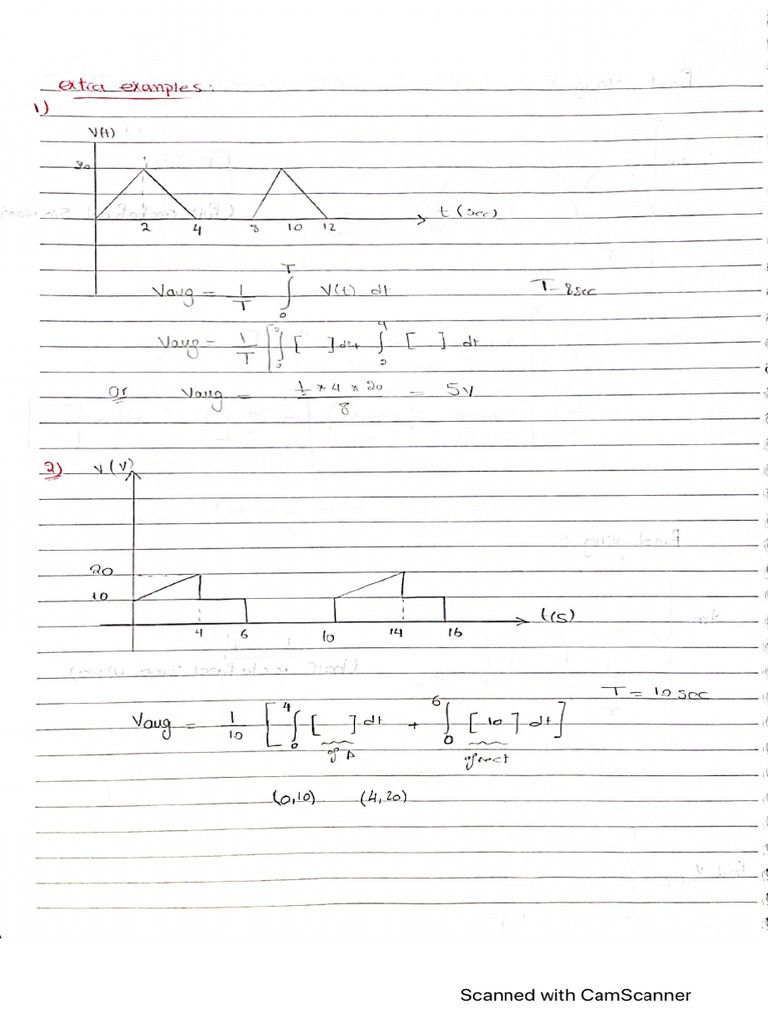 extra examples:
1)
V(t)
20
2 4 8 10 12 t (sec)
Vavg = 1/T ∫₀ᵀ V(t) dt T = 8sec
Vavg = 1/T [∫ [ ] dt + ∫₂⁴ [ ] dt
or Vavg = (½ * 4 * 20)/8 = 5V
2) v (V)
20
10
4 6 10 14 16 t(s)
T = 10 sec
Vavg = 1/10 [ ∫₀⁴ [ ] dt + ∫₀⁶ [10] dt ]
of Δ of rect
(0,10) (4,20)
Scanned with CamScanner